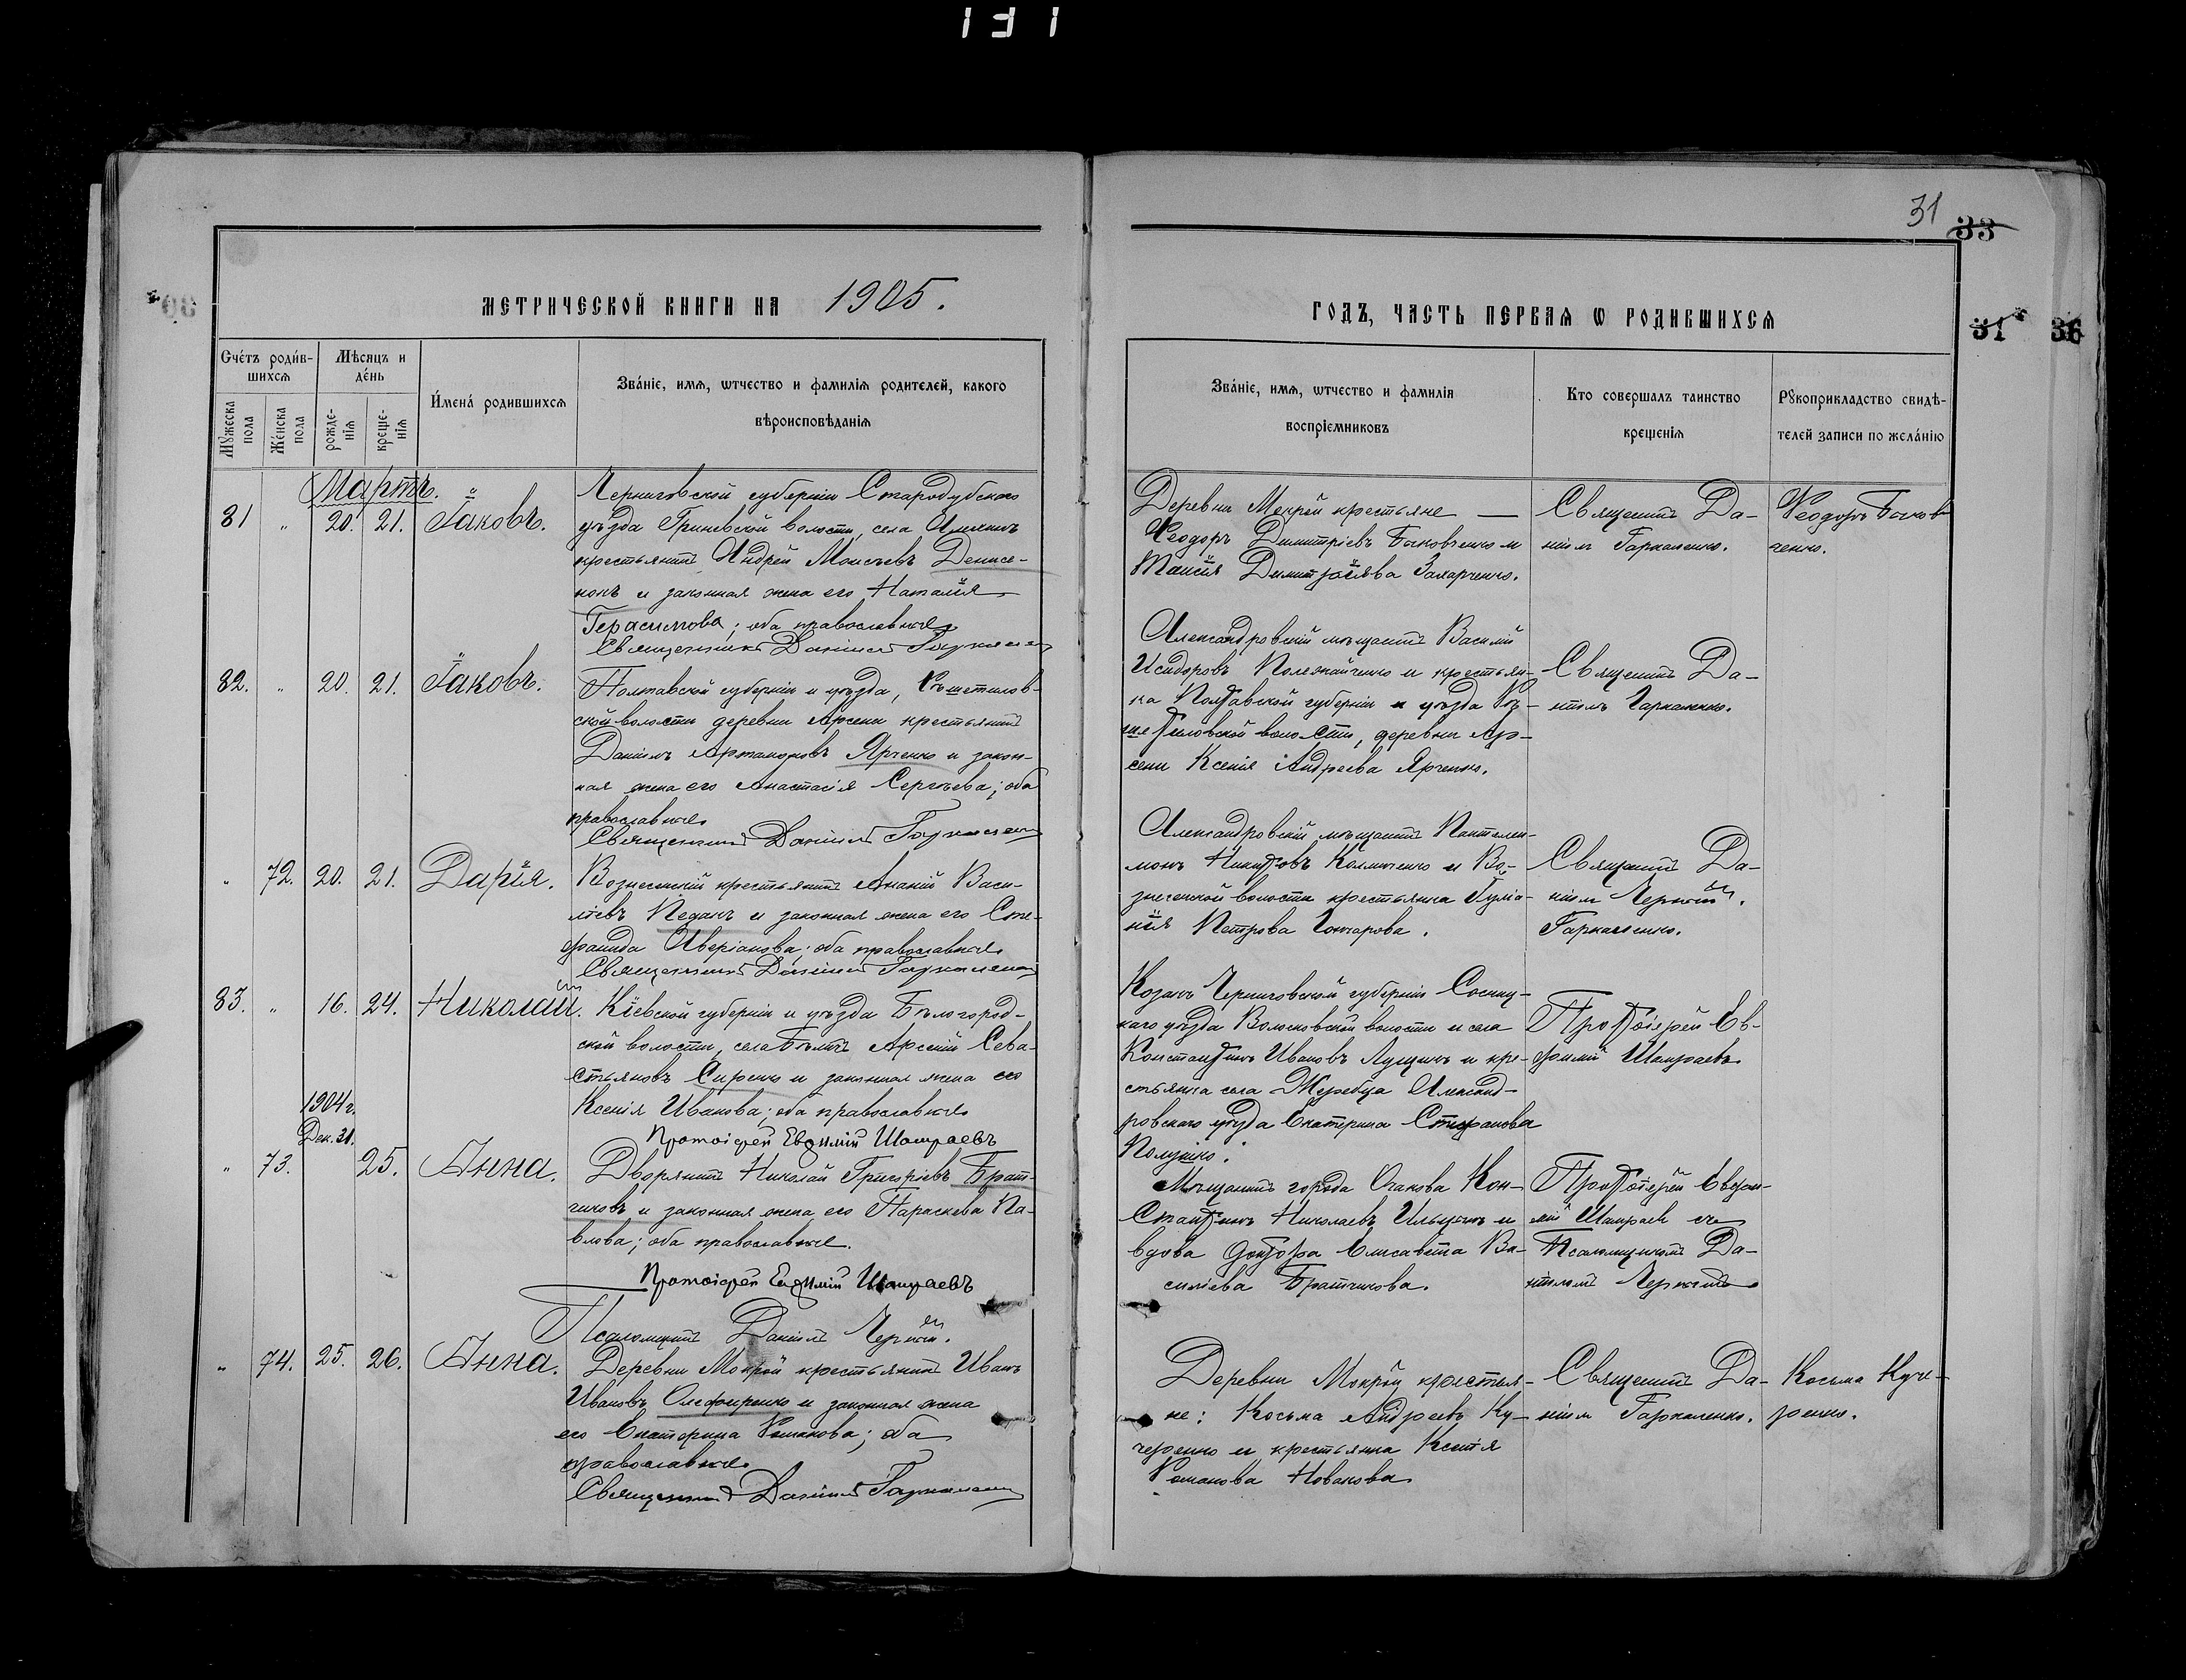 131
31
33
31 36
МЕТРИЧЕСКОЙ КНИГИ НА 1905.
ГОДЪ, ЧАСТЬ ПЕРВАЯ Ѡ РОДИВШИХСЯ
Счéтъ роди́вшихся
Мѣсяцъ и дéнь
Мꙋжеска пола
Жéнска пола
рождéнїя
крещéнїя
И́мена́ родившихся
Зва́нїе, имя, ѡтчество и фамилїя родителей, какого
вѣроисповѣданїя
Зва́нїе, имя, ѡтчество и фамилїя
воспрїемниковъ
Кто совершалъ таинство
крещенїя
Рꙋкоприкладство свидѣ-
телей записи по желáнїю
Мартъ.
81 " 20. 21. Іаковъ.
Черниговской губерніи Стародубскаго
уѣзда Гриневской волости, села
крестьянинъ Андрей Моисеевъ Денисе-
нокъ и законная жена его Наталія
Герасимова; оба православные
Священникъ Даніилъ Гаркаленко
Деревни Мокрой крестьяне —
Ѳеодоръ Димитріевъ Быковченко и
Таисія Димитріева Захарченко.
Священникъ Да-
ніилъ Гаркаленко.
Ѳеодоръ Быков-
ченко.
82. " 20. 21. Іаковъ.
Полтавской губерніи и уѣзда, Рѣшетилов-
ской волости деревни Арсени крестьянинъ
Даніилъ Артамоновъ Ярченко и закон-
ная жена его Анастасія Сергѣева; оба
православные
Священникъ Даніилъ Гаркаленко
Александровскій мѣщанинъ Василій
Исидоровъ и крестьян-
ка Полтавской губерніи и уѣзда Рѣ-
шетиловской волости, деревни Ар-
сени Ксенія Андреева Ярченко.
Священникъ Да-
ніилъ Гаркаленко.
" 72. 20. 21. Дарія.
Вознесенскій крестьянинъ Ананій Васи-
ліевъ Педанъ и законная жена его Сте-
фанида Аверіанова; оба православные
Священникъ Даніилъ Гаркаленко
Александровскій мѣщанинъ Пантелеи-
монъ Никитовъ и Во-
знесенской волости крестьянка Іуліа-
нія Петрова Гончарова.
Священникъ Да-
ніилъ Черный.
Гаркаленко.
83. " 16. 24. Николай.
Кіевской губерніи и уѣзда Бѣлогород-
ской волости, села Арсеній Сева-
стьяновъ Сиренко и законная жена его
Ксенія Иванова; оба православные
Протоіерей Евѳимій Шамраевъ
Козакъ Черниговской губерніи Сосниц-
каго уѣзда Волосковской волости и села
Константинъ Ивановъ и кре-
стьянка села Жеребца Александ-
ровскаго уѣзда Екатерина Стефанова
Протоіерей Ев-
фимій Шамраевъ
1904 г.
Дек. 31.
" 73. 25. Анна.
Дворянинъ Николай Григоріевъ Брат-
чиковъ и законная жена его Параскева Па-
влова; оба православные.
Протоіерей Евѳимій Шамраевъ
Псаломщикъ Даніилъ Черный.
Мѣщанинъ города Очакова Кон-
стантинъ Николаевъ Ильинъ и
вдова доктора Елисавета Ва-
силіева Братчикова.
Протоіерей Евфи-
мій Шамраевъ съ
Псаломщикомъ Да-
ніиломъ Чернымъ
" 74. 25. 26. Анна.
Деревни Мокрой крестьянинъ Иванъ
Ивановъ Олефиренко и законная жена
его Екатерина Романова; оба
православные
Священникъ Даніилъ Гаркаленко
Деревни Мокрой крестья-
не: Косьма Андреевъ Ку-
черенко и крестьянка Ксенія
Романова Новакова
Священникъ Да-
ніилъ Гаркаленко.
Косьма Куче-
ренко.